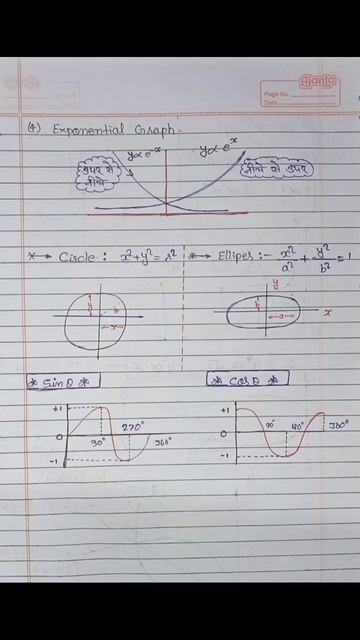 Ajanta
Page No.
Date
(4) Exponential Graph.
y∝e^x y∝e^x
ऊपर से नीचे
नीचे से ऊपर
*→ Circle: x²+y²=r² *→ Ellipes :- x²/a² + y²/b² = 1
y r x
y b a x
* Sinθ * * Cosθ *
+1 0 -1 90° 270° 360°
+1 0 -1 90° 180° 360°